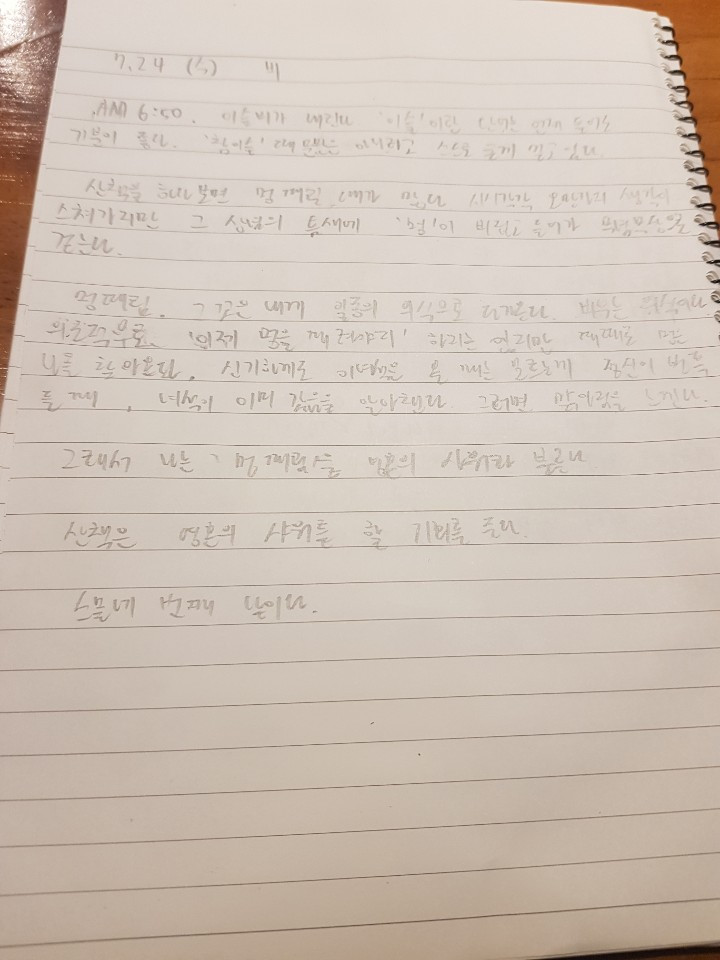 7.24 (수) 비
AM 6:50. 이슬비가 내린다. '이슬'이란 단어는 언제 들어도
기분이 좋다. '참이슬' 때문만은 아니라고 스스로 믿게
산책을 하다보면 멍 때릴 때가 많다 시시각각 오만가지 생각이
스쳐가지만 그 상념의 틈새에 '멍'이 비집고 들어가
걷는다.
멍때림. 그것은 내게 일종의 의식으로 다가온다. 비우는 의식이다
의도적으로 '이제 멍을 때려야지' 하기는 어렵지만 때때로 멍은
나를 찾아온다. 신기하게도 이녀석은 올 때는 모르는게 정신이 번쩍
들 때, 녀석이 이미 갔음을 알아챈다. 그러면 맑아짐을 느낀다.
그래서 나는, 멍 때림을 영혼의 샤워라 부른다
산책은 영혼의 샤워를 할 기회를 준다.
스물네 번째 날이다.